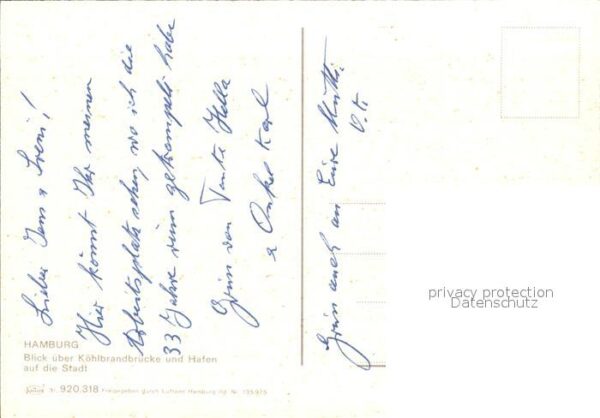 Liebe Jens & Ireni!
Hier könnt Ihr meinen
Arbeitsplatz sehen, wo ich die
33 Jahre rum getrampelt habe
Gruss von Tante Hella
& Onkel Karl
Gruss auch an Eure Mutti.
O.K.
HAMBURG
Blick über Köhlbrandbrücke und Hafen
auf die Stadt
920.318 Freigegeben durch Luftamt Hamburg
privacy protection
Datenschutz